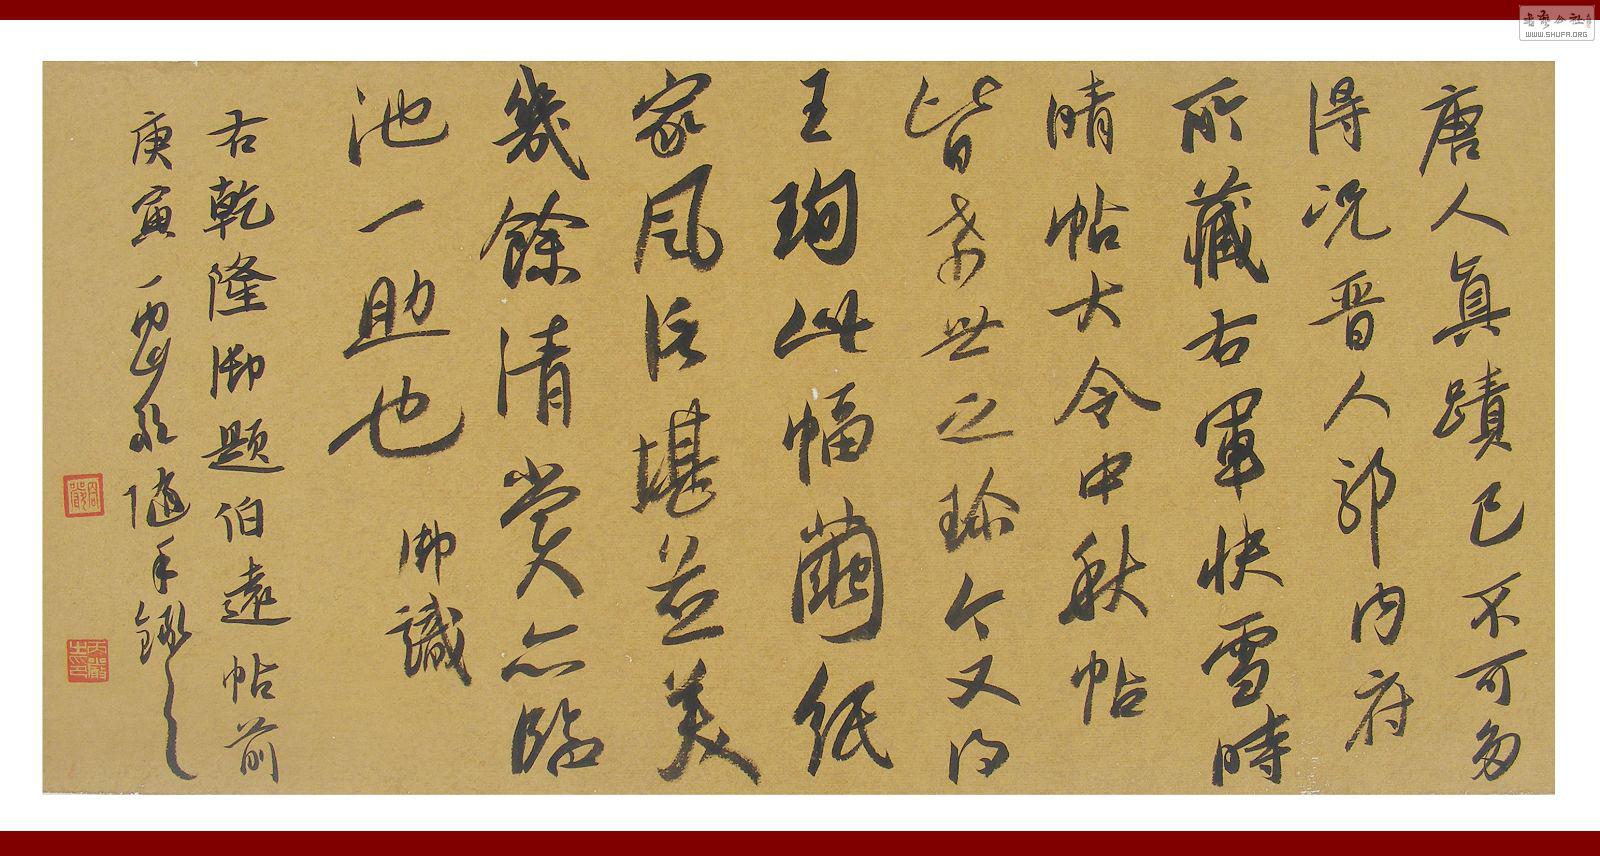 唐人真蹟已不可多
得况晋人耶内府
所藏右軍快雪時
晴帖大令中秋帖
皆希世之珍今又得
王珣此幅繭紙
家風信堪並美
幾餘清賞亦臨
池一助也
御識
右乾隆御题伯遠帖前
庚寅 隨手錄之
WWW.SHUFA.ORG